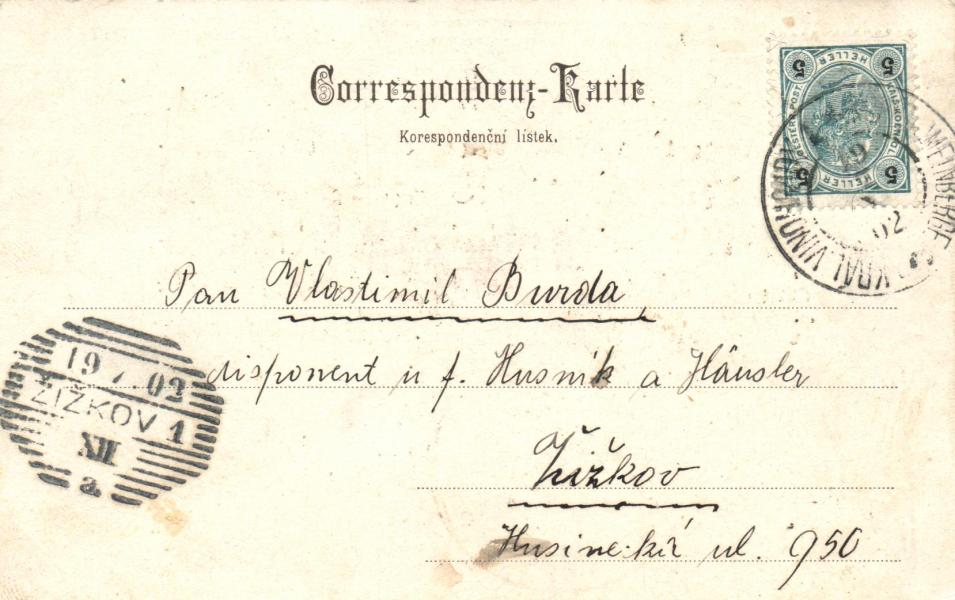 Correspondenz-Karte
Korespondenční lístek.
5 HELLER 5
KAIS. KÖNIGL.
ÖSTERR. POST.
5 HELLER 5
WEINBERGE
KRÁL. VINOHRADY
02
Pan Vlastimil Burda
disponent u f. Husník a Häusler
Žižkov
Husinecká ul. 950
19 7. 02
ŽIŽKOV 1
XII
a